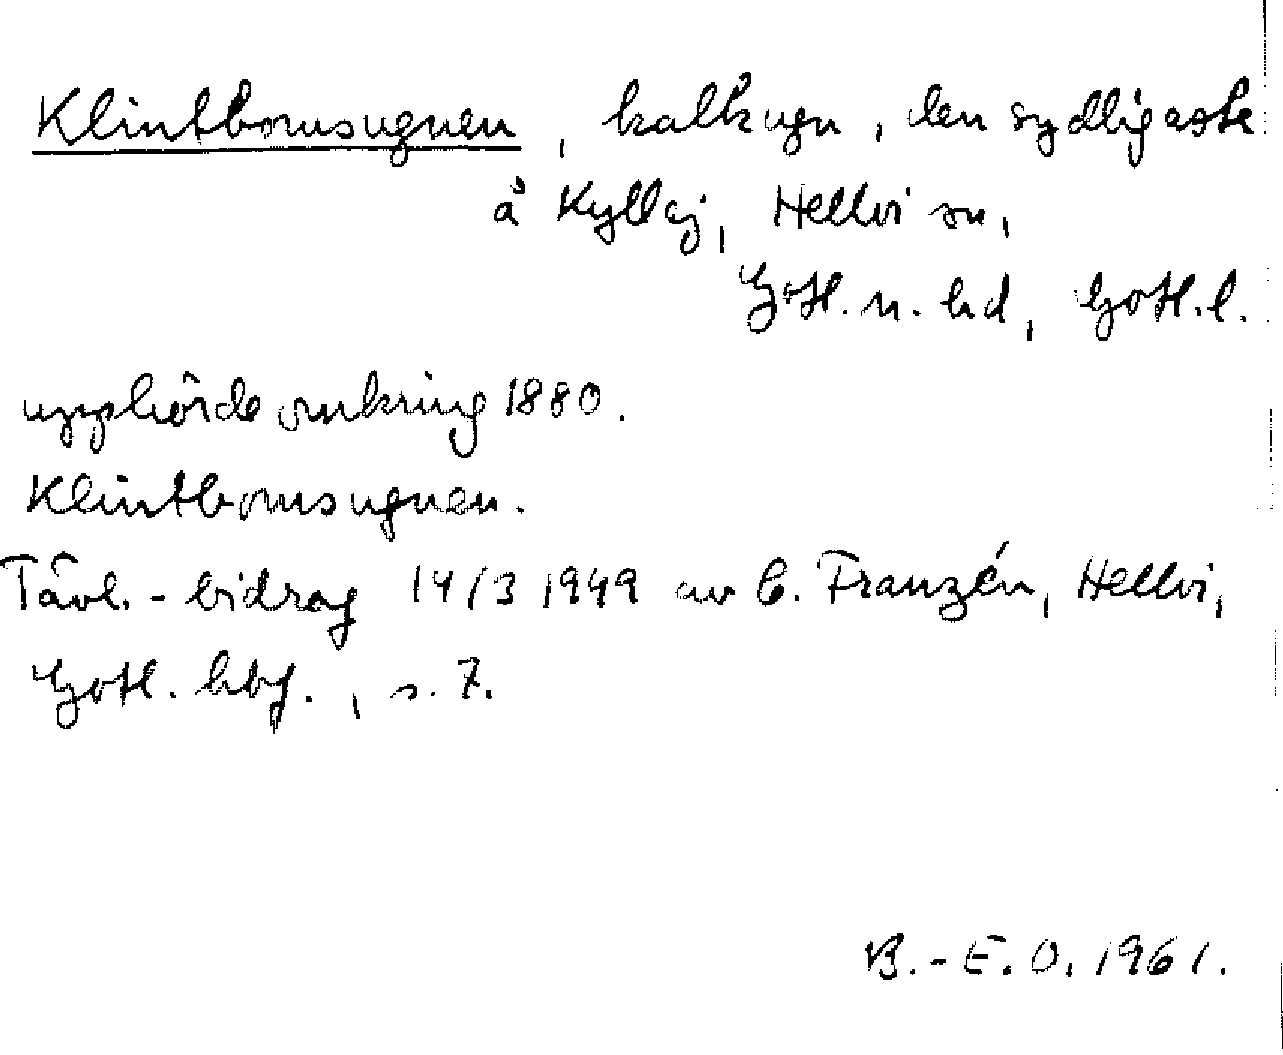 Klintbomsugnen, kalkugn, den sydligaste
å Kyllaj, Hellvi sn,
Gotl. n. hd, Gotl. l.
upphörde omkring 1880.
Klintbomsugnen.
Tävl.-bidrag 14/3 1949 av C. Franzén, Hellvi,
Gotl. hbf., s. 7.
B.-E. O. 1961.